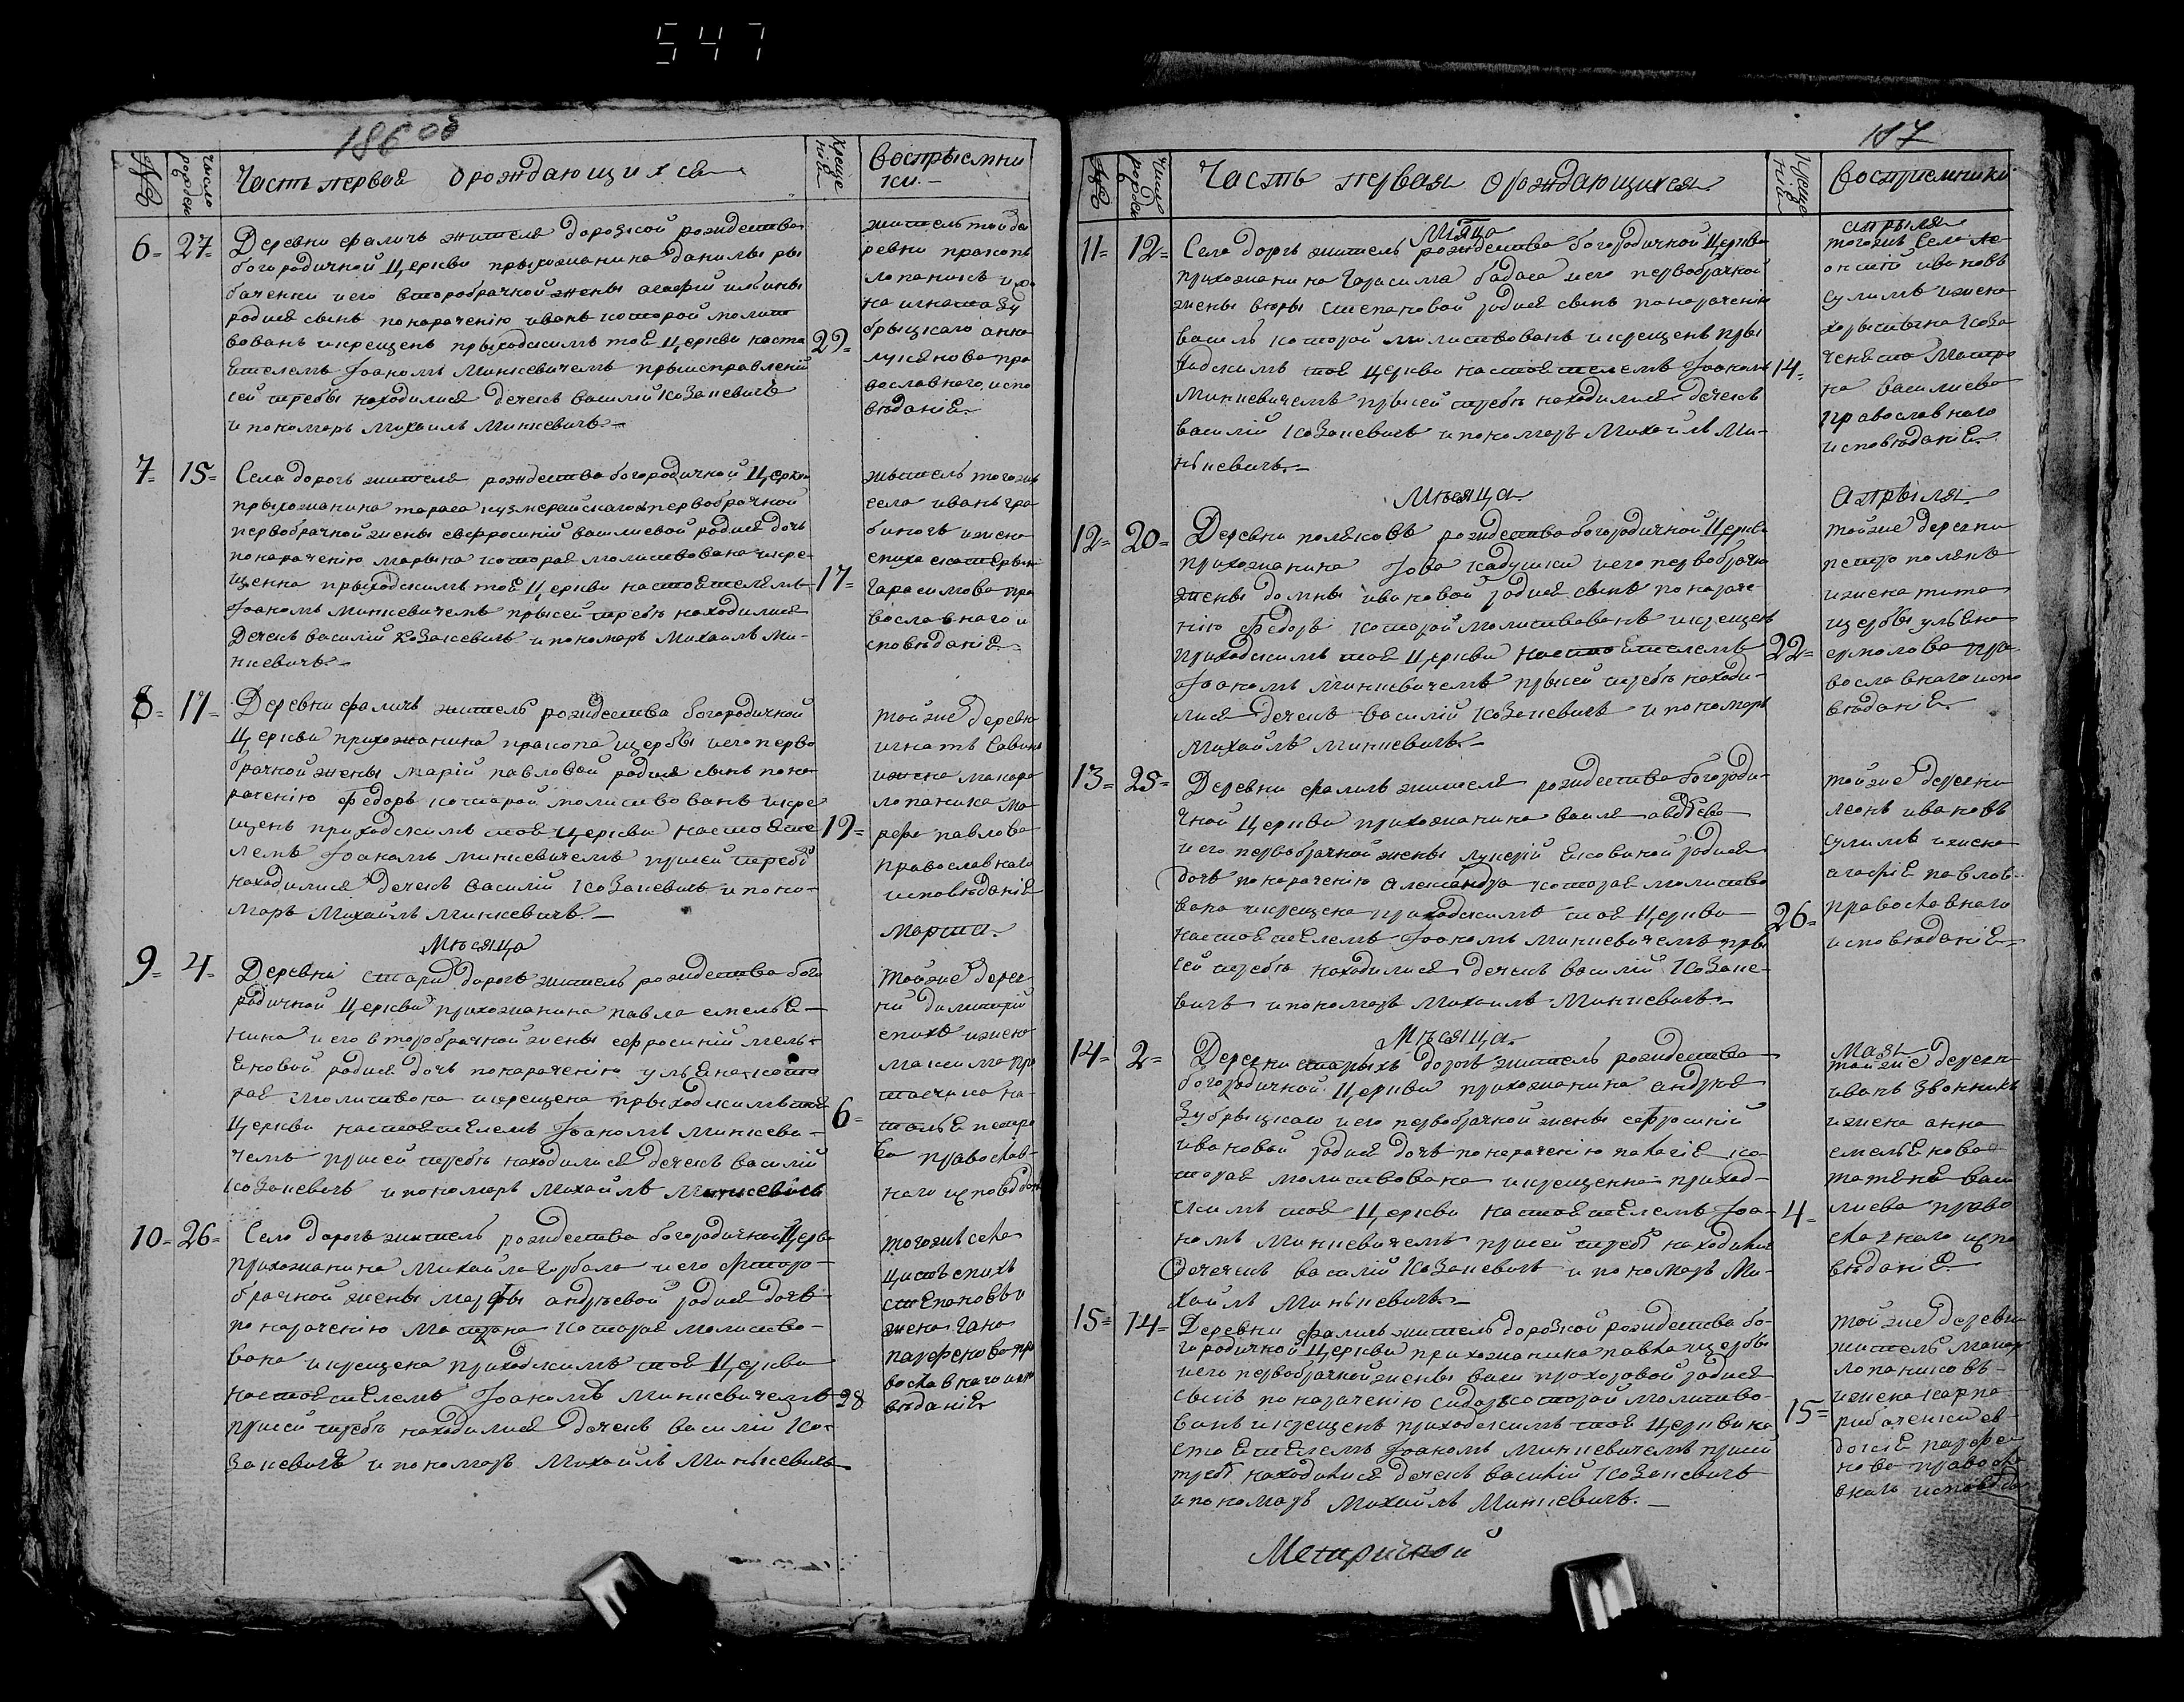 547
186 об
№
число рожден
Часть первая о рождающихся
креще нія
Воспрыемни
ки
6 27
Деревни фаличь жителя дорозкой рождества
богородичной Церкви прыхожанина данилы ры
баченки и его второбрачной жены агафіи
родися сынъ по нарачению иванъ которой молит
вованъ и крещенъ прыходскимъ той Церкви наста
ятелемъ Іоаномъ Минкевичемъ прыисправленіи
сей требы находилися дечекъ василій козакевичь
и пономаръ Михаилъ Минкевичь
29
житель той де
ревни
лопаникъ и
на игната зу
брыцкаго анна
лукянова пра
вославнаго испо
веданія
7 15
Села дорогъ жителя рождества богородичной Церкви
прыхожанина тараса первобрачной
первобрачной жены евфросиніи василиевой родися дочь
по нарачению марына которая молитвована и кре
щенна прыходскимъ той Церкви настоятелемъ
Іоаномъ минкевичемъ прысей требѣ находилися
дечекъ василій козакевичь и пономаръ Михаилъ Ми-
нкевичь
17
житель тогожъ
села иванъ гра
биногъ и жена
спиха екатерына
гарасимова пра
вославнаго и
споведанія
8 17
Деревни фаличь житель рождества богородичной
Церкви прихожанина пракопа щербы и его перво
брачной жены маріи павловой родися сынъ по на
рачению Федоръ которой молитвованъ и кре
щенъ приходскимъ тоя Церкви настояте
лемъ Іоаномъ минкевичемъ присей требѣ
находилися дечекъ василій козакевичь и поно-
маръ Михаилъ минкевичь
19
тойже деревни
игнатъ
и жена макара
лопаника ма
рфа павлова
православнаго
исповеданія
Мѣсяца
марта
9 4
Деревни стари дорогъ житель рождества бого
родичной Церкви прихожанина павла емелья
нина и его второбрачной жены ефросиніи емель
яновой родися дочь по нарачению ульяна кото
рая молитвована и крещена прыходскимъ тоя
Церкви настоятелемъ Іоаномъ минкеви-
чемъ присей требѣ находилися дечекъ василій
козакевичь и пономаръ Михаилъ Минкевичь
6
тойже дерев
ни димитрій
спихъ и жена
максима
на
талья петро
ва православ-
наго исповедан
10 26
Село дорогъ житель рождества богородичной Церкви
прихожанина Михайла горбача и его фторо-
брачной жены марфы андреевой родися дочь
по нарачению Матрона которая молитво-
вана и крещена приходскимъ тоя Церкви
настоятелемъ Іоаномъ Минкевичемъ
присей требѣ находилися дечекъ василій ко-
закевичь и пономаръ Михаилъ Минкевичь
28
тогожъ села
спихъ
степановъ и
жена гана
парфенова пра
вославнаго испо
веданія
187
№
число рожден
Часть первая о рождающихся
креще нія
Воспріемники
Мѣсяца
апрыля
11 12
Села дорогъ житель рождества богородичной Церкви
прихожанина Гарасима бадая и его первобрачной
жены степановой родися сынъ по нарачению
василь которой молитвованъ и крещенъ при
ходскимъ тоя Церкви настоятелемъ Іоаномъ
минкевичемъ прысей требѣ находилися дечекъ
василій козакевичь и пономаръ Михайлъ Ми-
нькевичь
14
тогожъ села ле
онтій ивановъ
сулимъ и жена
Матро
на василиева
православнаго
исповеданія
Мѣсяца
Апрыля
12 20
Деревни поляковъ рождества богородичной Церкви
прихожанина Іова кадушки и его первобрачн
жены домны ивановой родися сынъ по нараче
нію Федоръ которой молитвованъ и крещенъ
приходскимъ тоя Церкви настоятелемъ
Іоаномъ минкевичемъ прысей требѣ находи-
лися дечекъ василій козакевичь и пономаръ
Михайлъ минкевичь
22
тойже деревни
петро полякъ
и жена тита
щербы ульяна
ермолова пра
вославнаго испо
веданія
13 25
Деревни фаличь жителя рождества богороди-
чной Церкви прихожанина василя авдеева
и его первобрачной жены лукеріи яковиной родися
дочь по нарачению александра которая молитво
вана и крещена приходскимъ тоя Церкви
настоятелемъ Іоаномъ минкевичемъ пры
сей требѣ находилися дечекъ василій козаке-
вичь и пономаръ Михаилъ Минкевичь
26
тойже деревни
леонъ ивановъ
сулимъ и жена
агафія павлов
православнаго
исповеданія
Мѣсяца
Мая
14 2
Деревни старыхъ дорогъ житель рождества
богородичной Церкви прихожанина андрея
Зубрыцкаго и его первобрачной жены ефросиніи
ивановой родися дочь по нарачению палагія ко
торая молитвована и крещенна приход-
скимъ тоя Церкви настоятелемъ Іоа-
номъ минкевичемъ присей требѣ находились
дечекъ василій козакевичь и пономаръ Ми-
хайлъ Минькевичь
4
тойже деревни
иванъ звонникъ
и жена анна
емельянова
татяна васи
лиева право
славнаго испо
веданія
15 14
Деревни фаличь житель дорозкой рождества бо-
городичной Церкви прихожанина павла щербы
и его первобрачной жены васи прохоровой родися
сынъ по нарачению сидоръ которой молитво-
ванъ и крещенъ приходскимъ тоя Церкви на
стоятелемъ Іоаномъ минкевичемъ присей
требѣ находилися дечекъ василій козакевичь
и пономаръ Михайлъ Минкевичь
15
тойже деревни
житель макаръ
лопаниковъ
и жена карпа
рибаченки ев-
докія парфе
нова правосла
внаго исповеда
Метрической